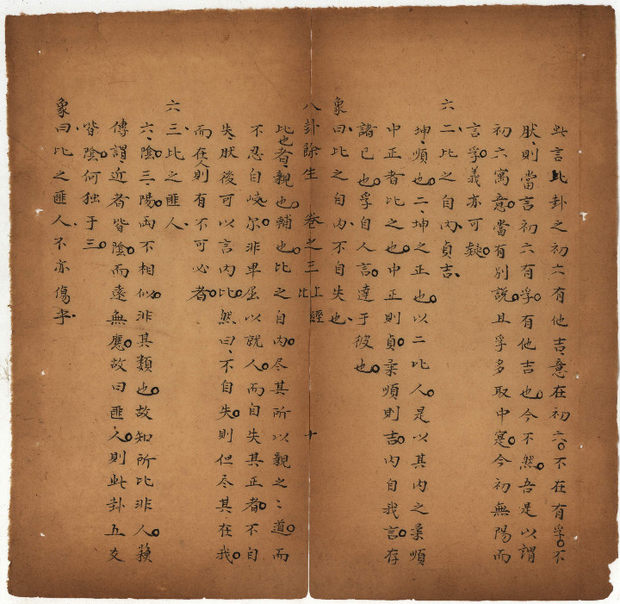 此言比卦之初六有他吉意在初六不在有孚不
肰則當言初六有孚有他吉也今不然吾是以謂
初六寓意當有別說且孚多取中寔今初無陽而
言孚義亦可疑
六二比之自內貞吉
坤順也二坤之正也以二比人是以其內之柔順
中正者比之也中正則貞柔順則吉內自我言存
諸己也孚自人言達于彼也
象曰比之自內不自失也
八卦餘生 卷之三 上經 比 十
比也者親也輔也比之自內尽其所以親之之道而
不忍自峻尔非卑屈以說人而自失其正者不自
失肰後可以言內比然曰不自失則但尽其在我
而在人則有不可必者
六三比之匪人
六陰三陽両不相似非其類也故知所比非人蘓
傳謂近者皆陰而遠無應故曰匪人則此卦五爻
皆陰何独于三
象曰比之匪人不亦傷乎